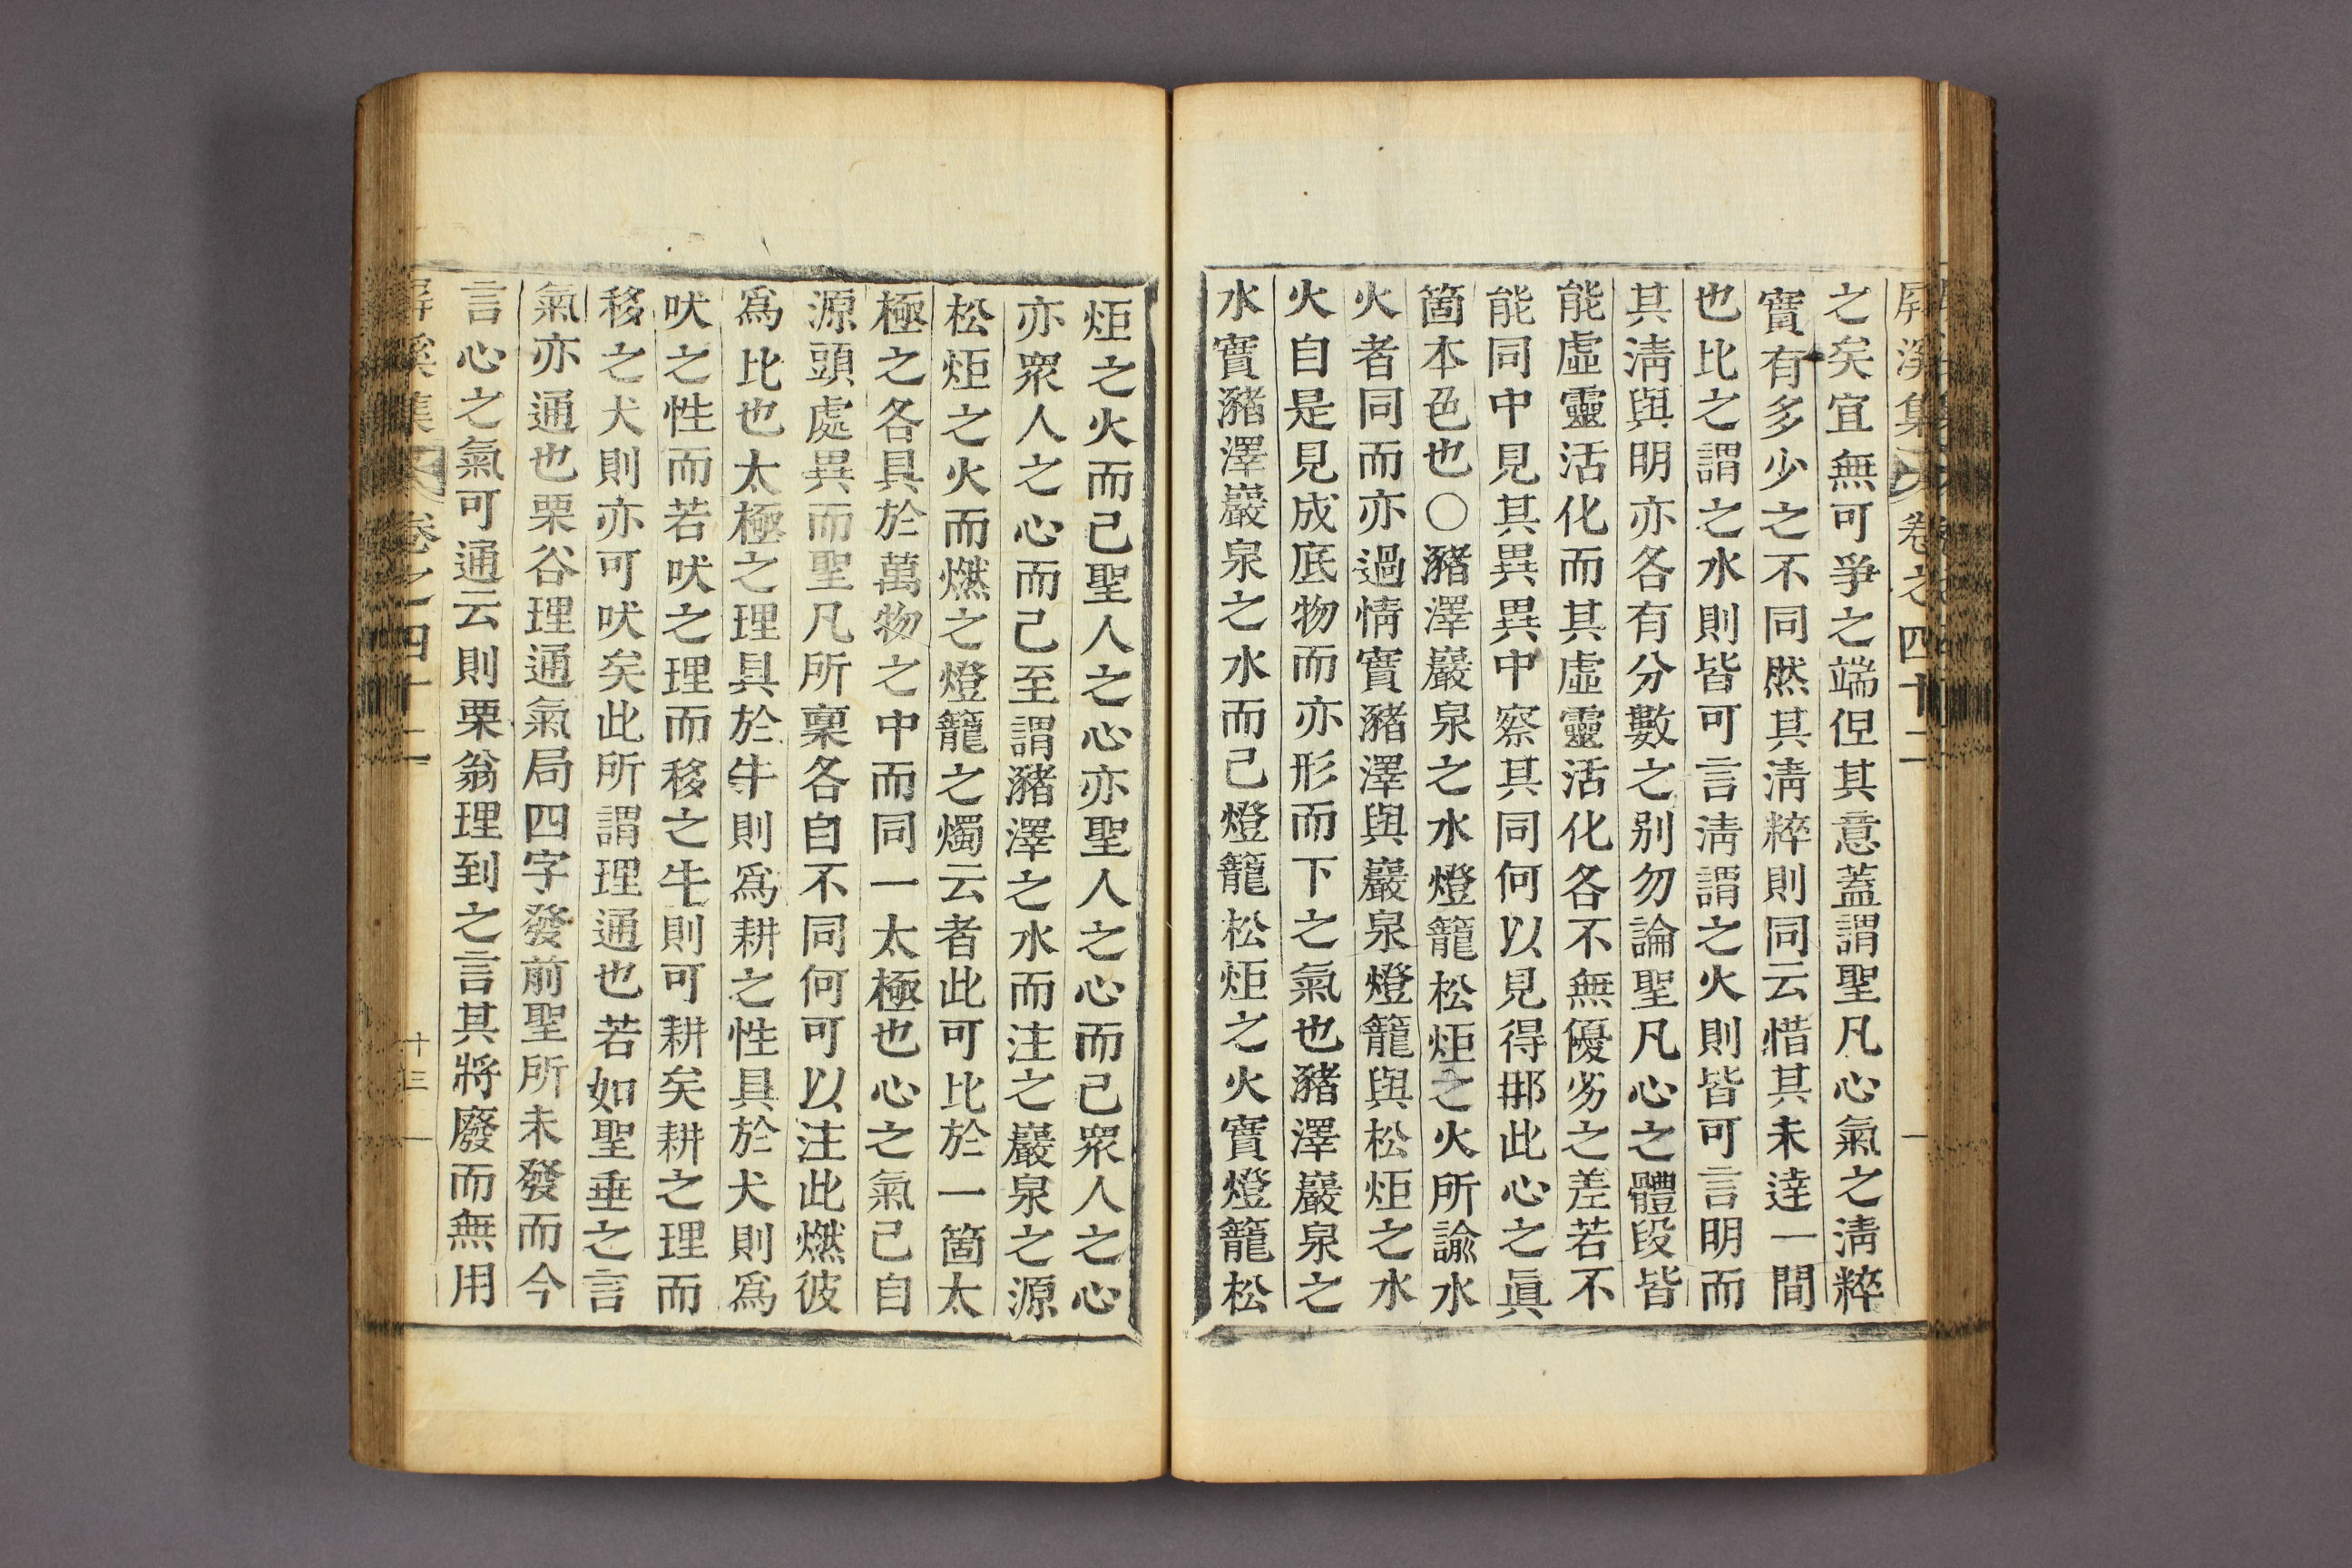 屛溪集 卷之四十二
之矣宜無可爭之端但其意蓋謂聖凡心氣之淸粹
實有多少之不同然其淸粹則同云惜其未達一間
也比之謂之水則皆可言淸謂之火則皆可言明而
其淸與明亦各有分數之別勿論聖凡心之體段皆
能虛靈活化而其虛靈活化各不無優劣之差若不
能同中見其異異中察其同何以見得那此心之眞
箇本色也○豬澤巖泉之水燈籠松炬之火所諭水
火者同而亦過情實豬澤與巖泉燈籠與松炬之水
火自是見成底物而亦形而下之氣也豬澤巖泉之
水實豬澤巖泉之水而己燈籠松炬之火實燈籠松
炬之火而己聖人之心亦聖人之心而己眾人之心
亦眾人之心而己至謂豬澤之水而注之巖泉之源
松炬之火而燃之燈籠之燭云者此可比於一箇太
極之各具於萬物之中而同一太極也心之氣己自
源頭處異而聖凡所稟各自不同何可以注此燃彼
爲比也太極之理具於牛則爲耕之性具於犬則爲
吠之性而若吠之理而移之牛則可耕矣耕之理而
移之犬則亦可吠矣此所謂理通也若如聖垂之言
氣亦通也栗谷理通氣局四字發前聖所未發而今
言心之氣可通云則栗翁理到之言其將廢而無用
屛溪集 卷之四十二 十三